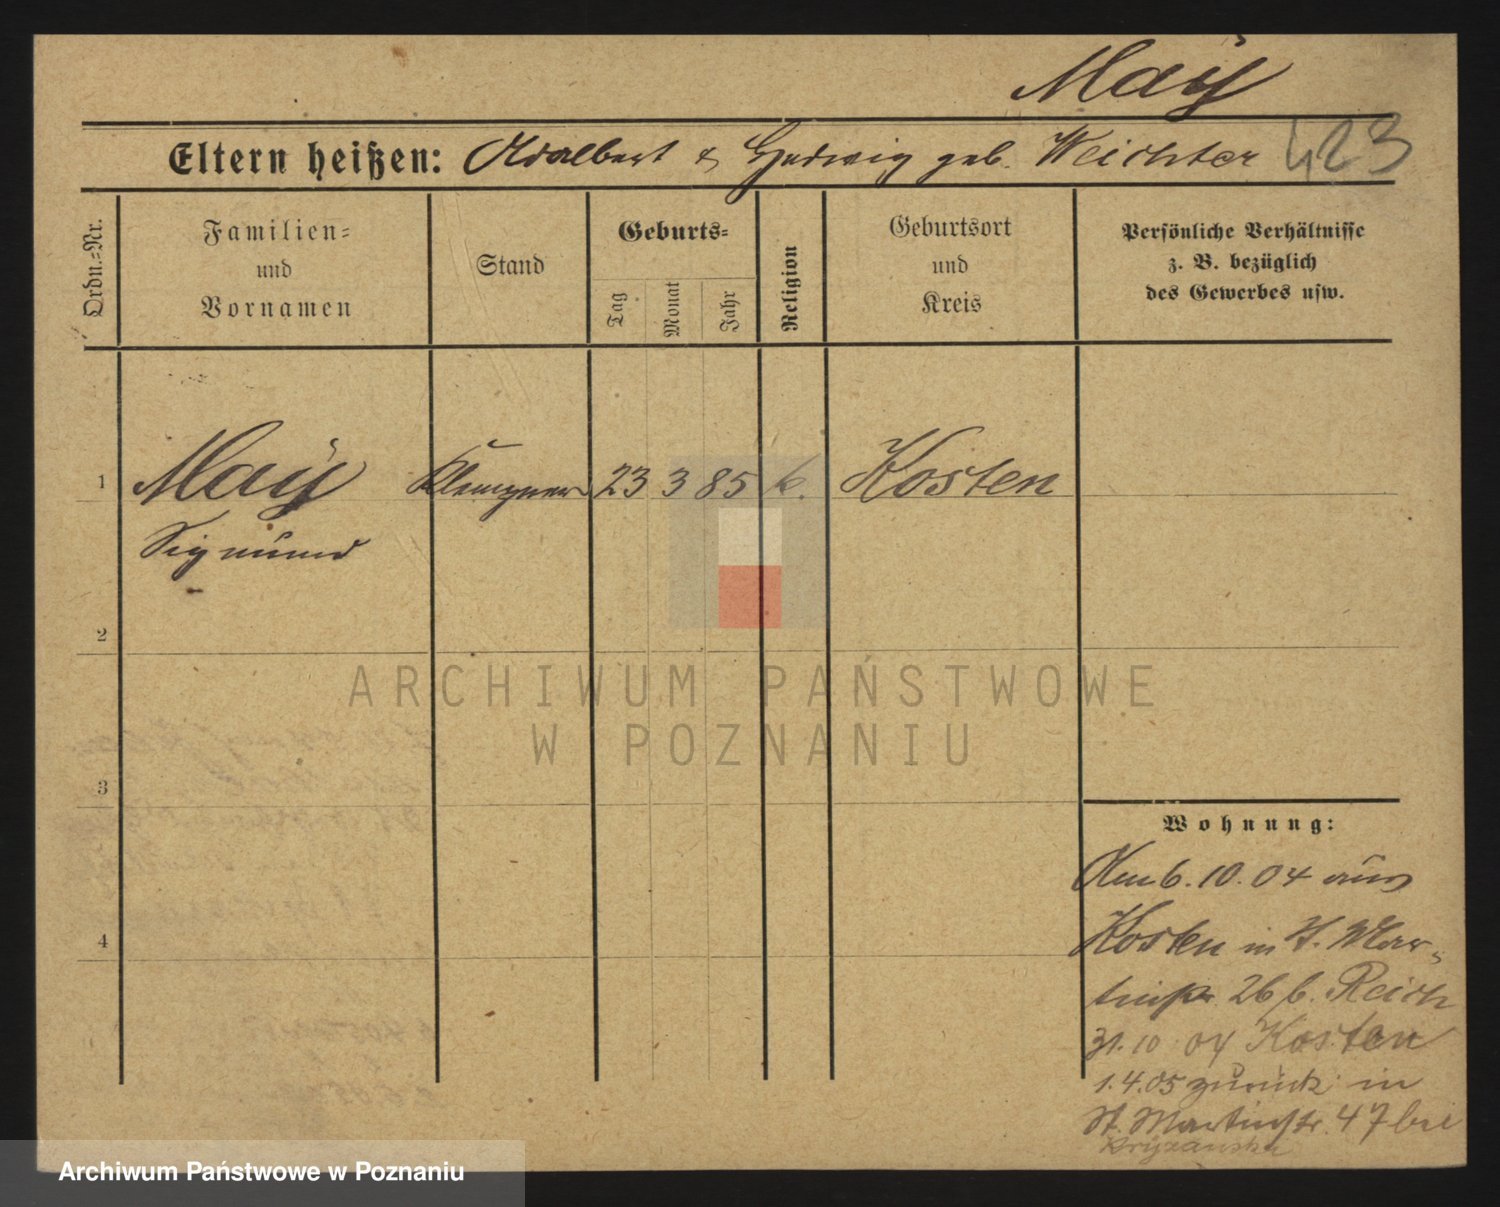 Maÿ
Eltern heißen: Adalbert & Hedwig geb. Weichter 423
Ordn.-Nr.
Familien-
und
Vornamen
Stand
Geburts-
Tag
Monat
Jahr
Religion
Geburtsort
und
Kreis
Persönliche Verhältnisse
z. B. bezüglich
des Gewerbes usw.
1 Maÿ Klempner 23 3 85 k. Kosten
Sigmund
2
ARCHIWUM PAŃSTWOWE
W POZNANIU
3
Wohnung:
Am 6. 10. 04 aus
4
Kosten in St. Mar-
tinstr. 26 b. Reich
31. 10 04 Kosten
1. 4. 05 zurück in
St. Martinstr. 47 bei
Archiwum Państwowe w Poznaniu